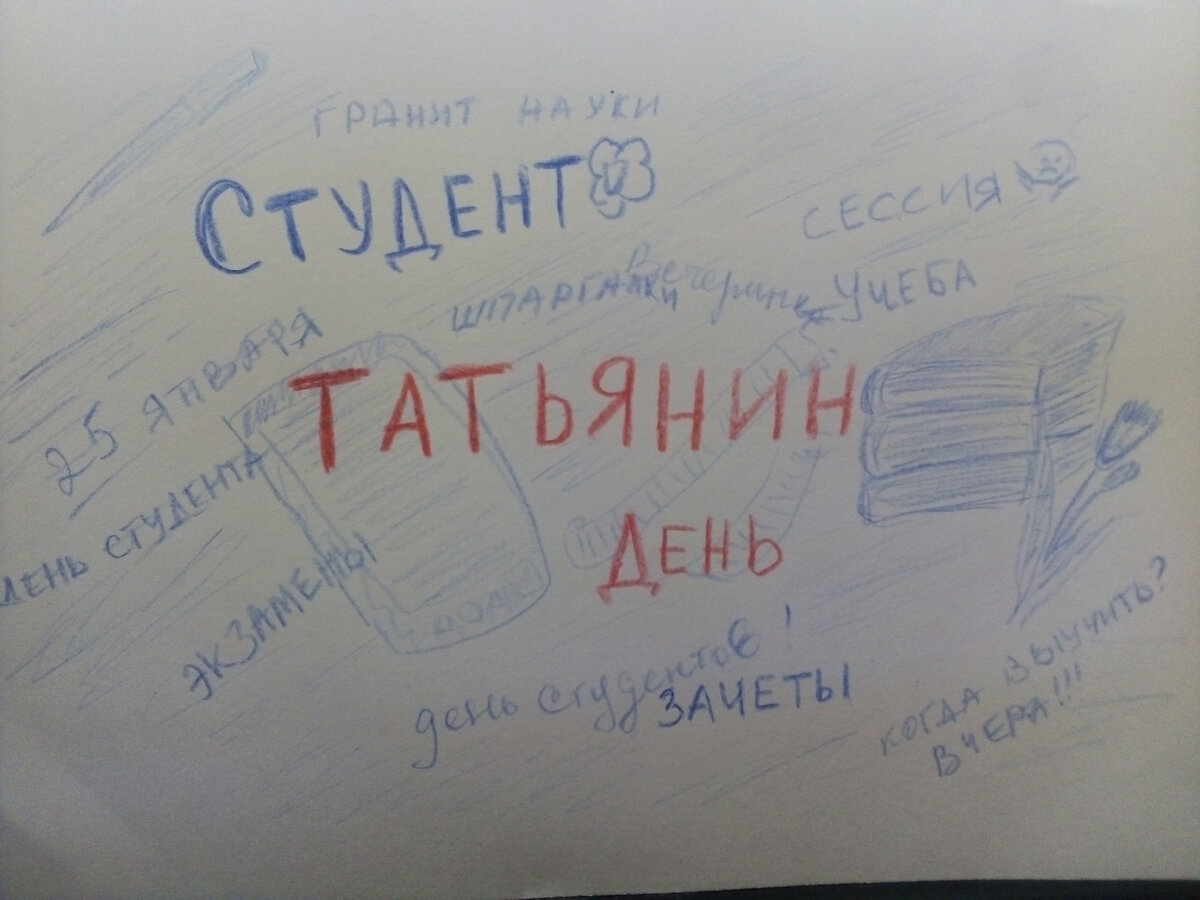 ГРАНИТ НАУКИ
СТУДЕНТ
СЕССИЯ
ШПАРГАЛКИ
Вечеринка
УЧЕБА
25 ЯНВАРЯ
ТАТЬЯНИН
ДЕНЬ
ДЕНЬ СТУДЕНТА
ЭКЗАМЕНЫ
день студентов!
ЗАЧЕТЫ
КОГДА ВЫУЧИТЬ?
ВЧЕРА!!!